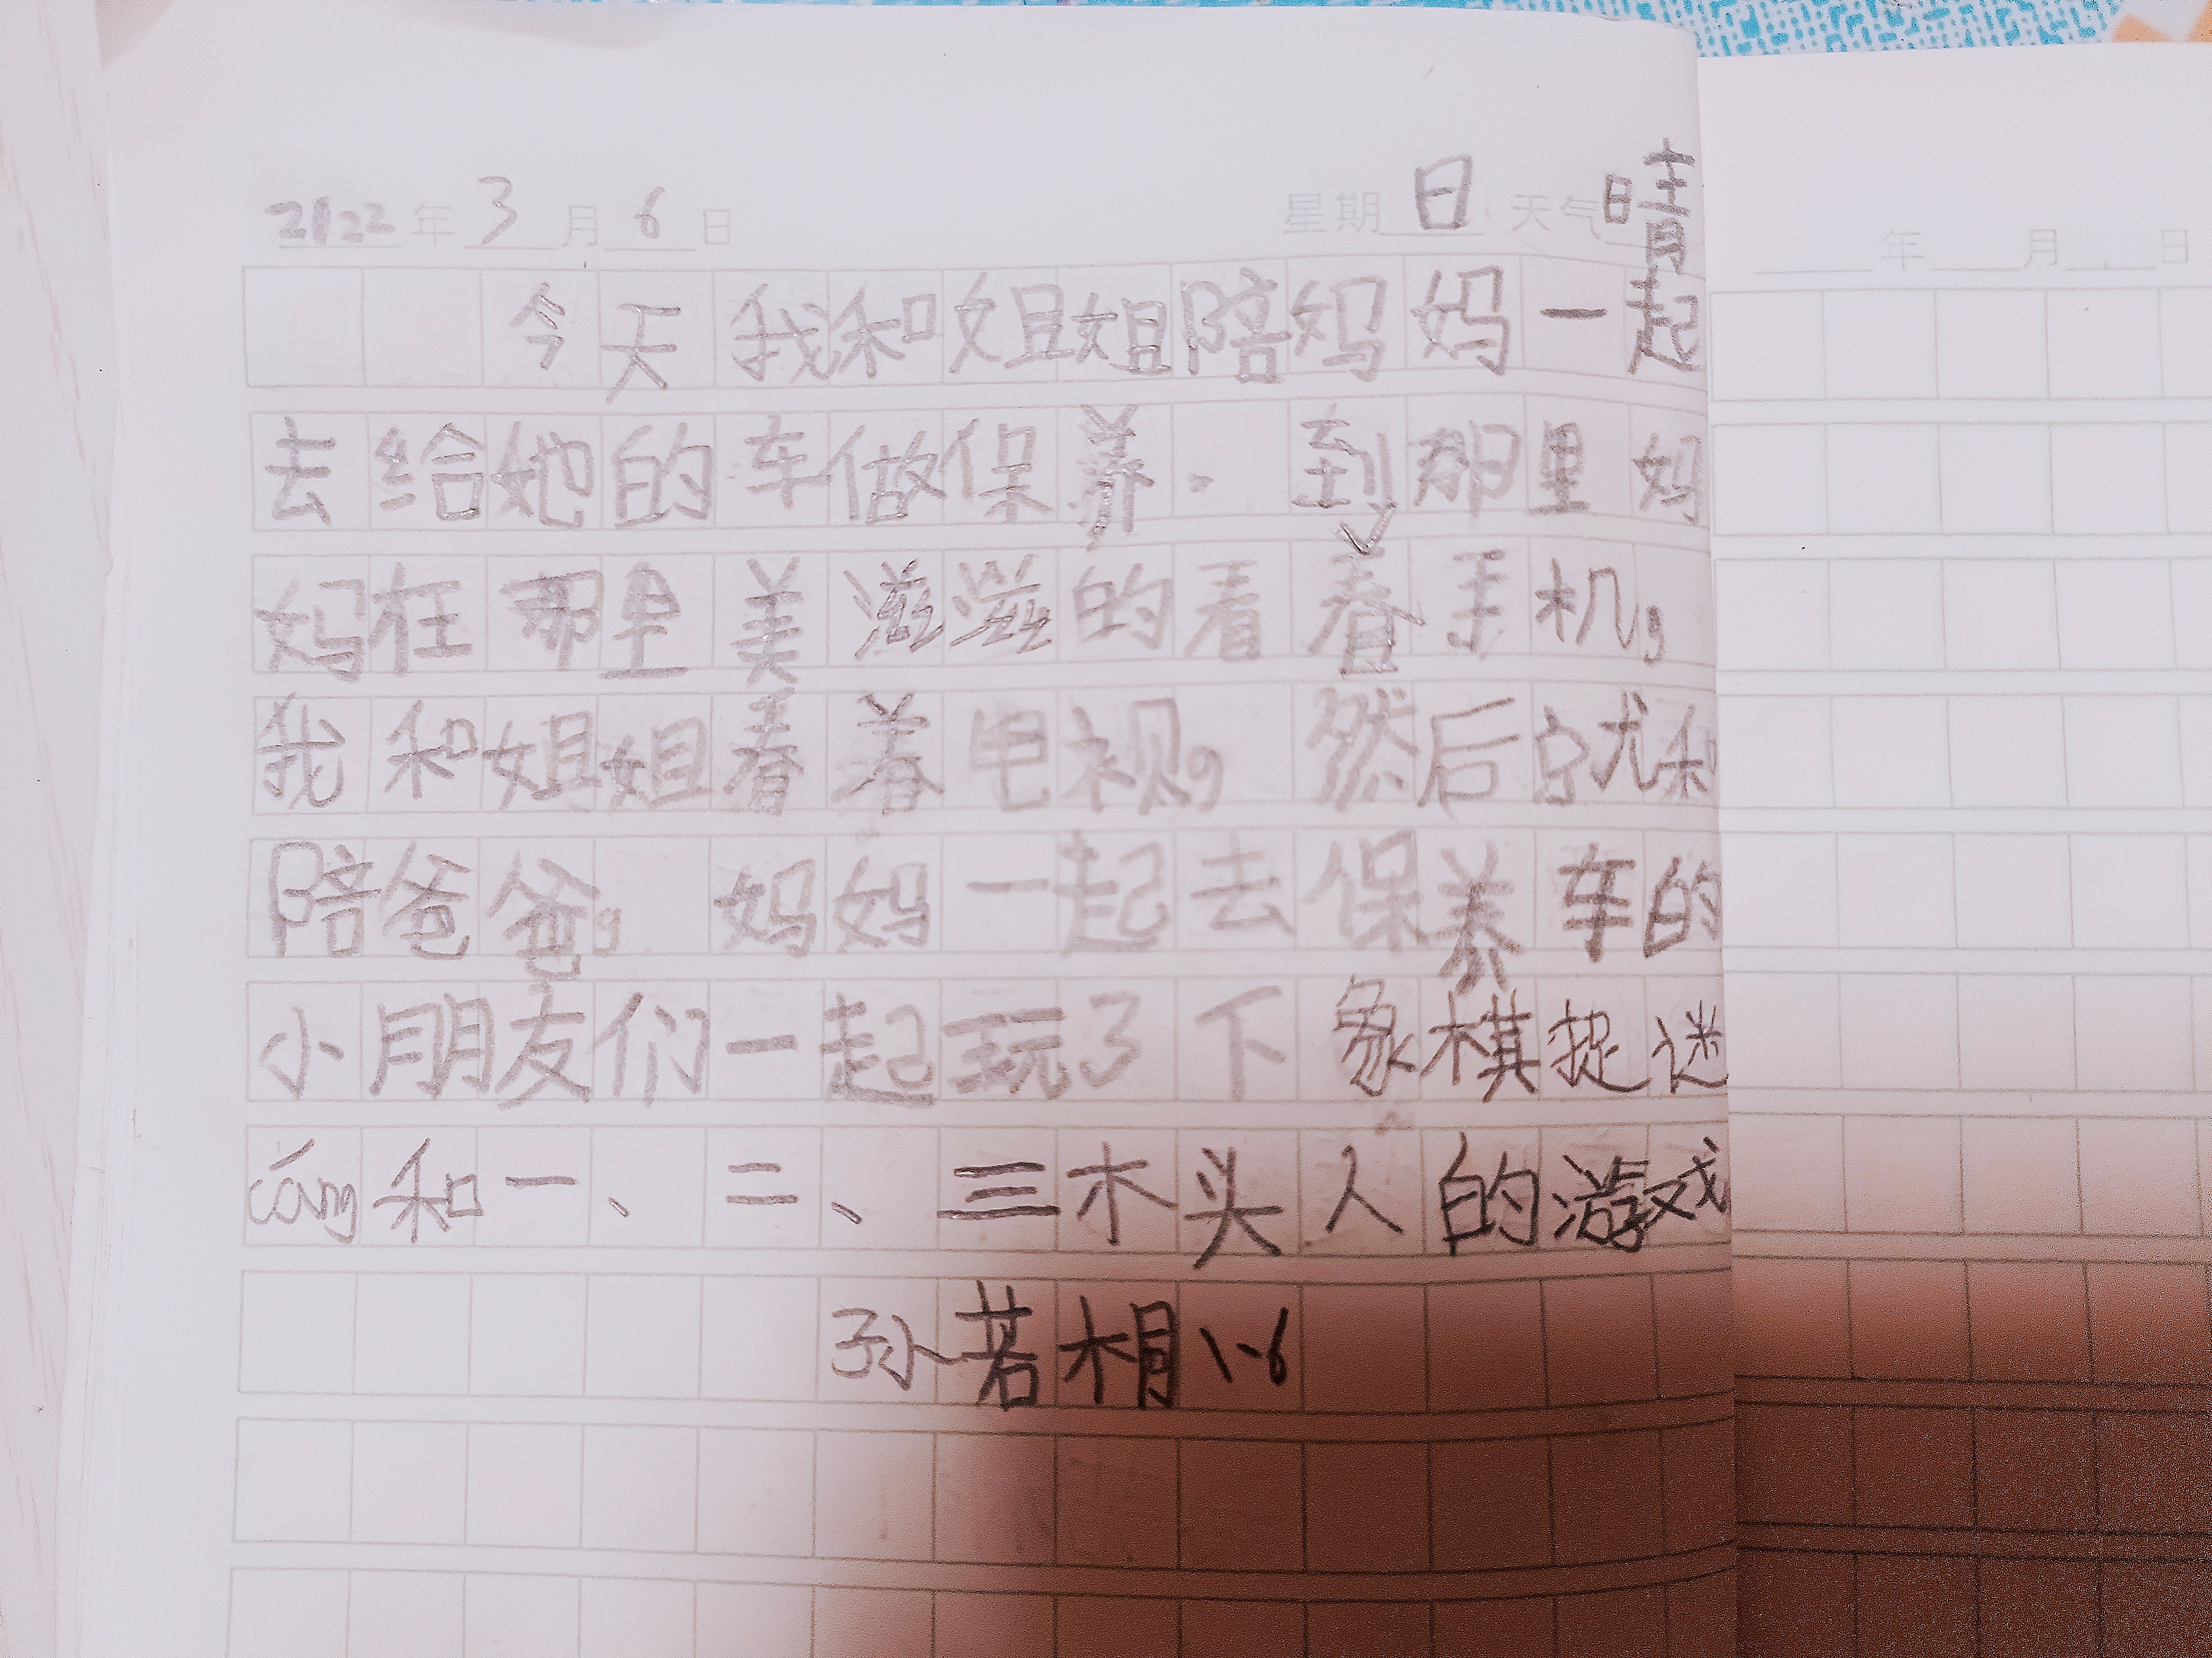 2022年3月6日 星期日 天气晴
今天我和姐姐陪妈妈一起
去给她的车做保养。到那里妈
妈在那里美滋滋的看着手机,
我和姐姐看着电视。然后就和
陪爸爸。妈妈一起去保养车的
小朋友们一起玩了下象棋捉迷
cáng和一、二、三木头人的游戏
孙若相1-6
年 月 日